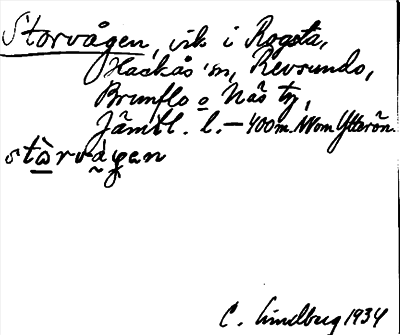 Storvågen, vik i Rogsta,
Hackås sn, Revsunds,
Brunflo o Näs tg,
Jämtl. l. – 400 m. NV om Ytterön.
stὼrvágan
C. Lindberg 1934